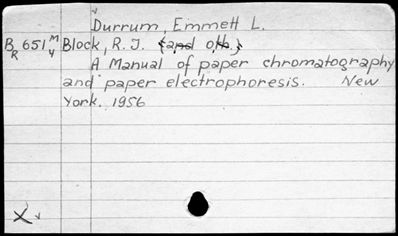 Durrum, Emmett L.
B 651 M Block, R. J. {and oth.}
R 4 A Manual of paper chromatography
and paper electrophoresis. New
York. 1956
X